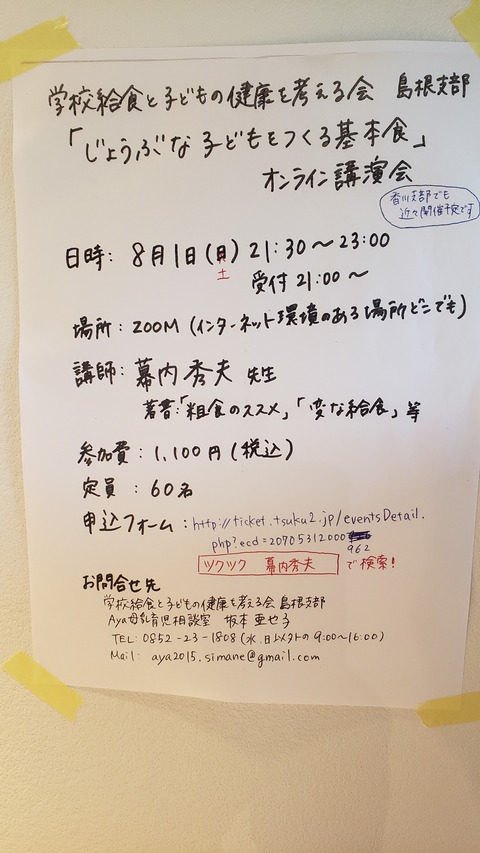 学校給食と子どもの健康を考える会 島根支部
「じょうぶな子どもをつくる基本食」
オンライン講演会
香川支部でも
近々開催予定です
日時: 8月1日(日) 21:30〜23:00
土
受付 21:00〜
場所: ZOOM (インターネット環境のある場所どこでも)
講師: 幕内秀夫 先生
著書:「粗食のススメ」「変な給食」等
参加費: 1,100円(税込)
定員: 60名
申込フォーム: http://ticket.tsuku2.jp/eventsDetail.
php?ecd=20705312000
962
ツクツク 幕内秀夫 で検索!
お問合せ先
学校給食と子どもの健康を考える会 島根支部
Aya母乳育児相談室 坂本 亜也子
TEL: 0852-23-1808 (水、日以外の9:00〜16:00)
Mail: aya2015.simane@gmail.com